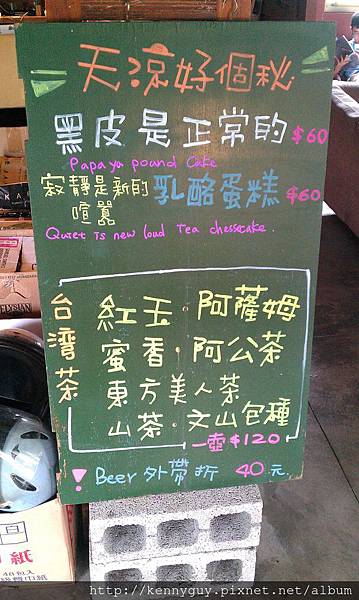 天涼好個秋
黑皮是正常的 $60
Papaya pound cake
寂靜是新的喧囂 乳酪蛋糕 $60
Quiet Is new loud Tea chessecake.
台灣茶
紅玉．阿薩姆
蜜香．阿公茶
東方美人茶
山茶．文山包種
一壺$120
! Beer 外帶折 40元
http://kennyguy.pixnet.net/album